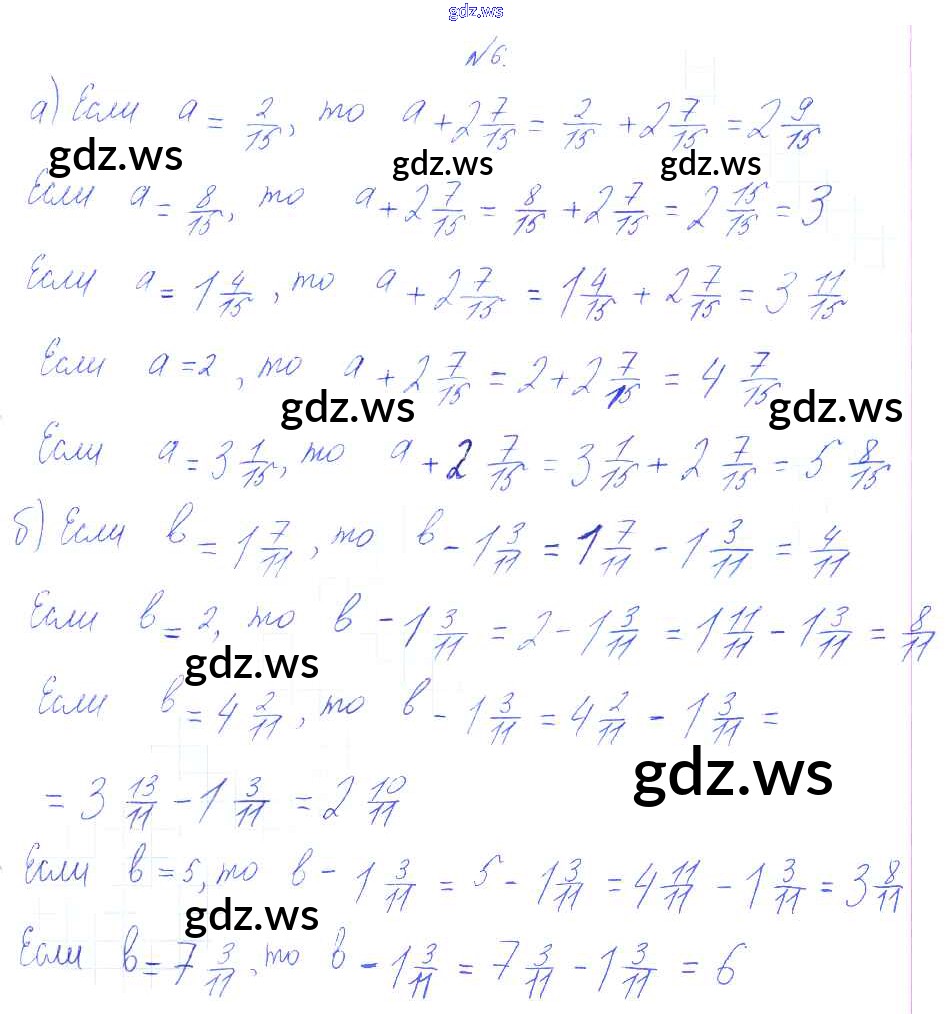 gdz.ws
№6.
а) Если a = 2/15, то a + 2 7/15 = 2/15 + 2 7/15 = 2 9/15
gdz.ws gdz.ws gdz.ws
Если a = 8/15, то a + 2 7/15 = 8/15 + 2 7/15 = 2 15/15 = 3
Если a = 1 4/15, то a + 2 7/15 = 1 4/15 + 2 7/15 = 3 11/15
Если a = 2, то a + 2 7/15 = 2 + 2 7/15 = 4 7/15
gdz.ws gdz.ws
Если a = 3 1/15, то a + 2 7/15 = 3 1/15 + 2 7/15 = 5 8/15
б) Если в = 1 7/11, то в - 1 3/11 = 1 7/11 - 1 3/11 = 4/11
Если в = 2, то в - 1 3/11 = 2 - 1 3/11 = 1 11/11 - 1 3/11 = 8/11
gdz.ws
Если в = 4 2/11, то в - 1 3/11 = 4 2/11 - 1 3/11 =
gdz.ws
= 3 13/11 - 1 3/11 = 2 10/11
Если в = 5, то в - 1 3/11 = 5 - 1 3/11 = 4 11/11 - 1 3/11 = 3 8/11
gdz.ws
Если в = 7 3/11, то в - 1 3/11 = 7 3/11 - 1 3/11 = 6